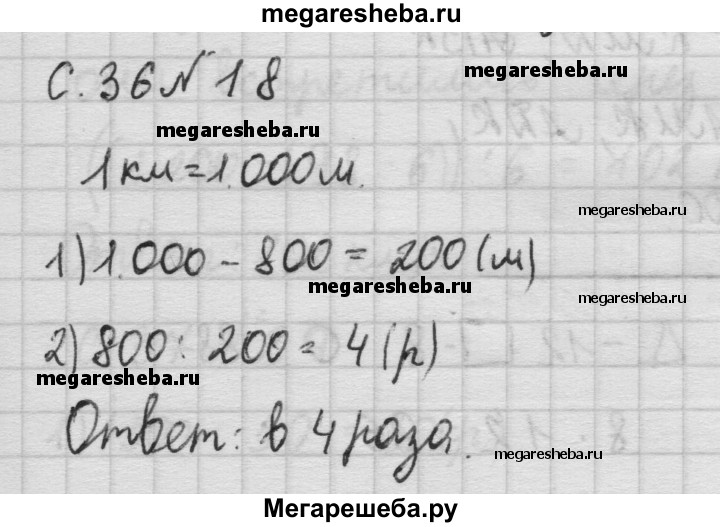 megaresheba.ru
С. 36 № 18
megaresheba.ru
megaresheba.ru
1 км = 1.000 м.
megaresheba.ru
1) 1.000 - 800 = 200 (м)
megaresheba.ru
megaresheba.ru
2) 800 : 200 = 4 (р)
megaresheba.ru
Ответ: в 4 раза.
megaresheba.ru
Мегарешеба.ру